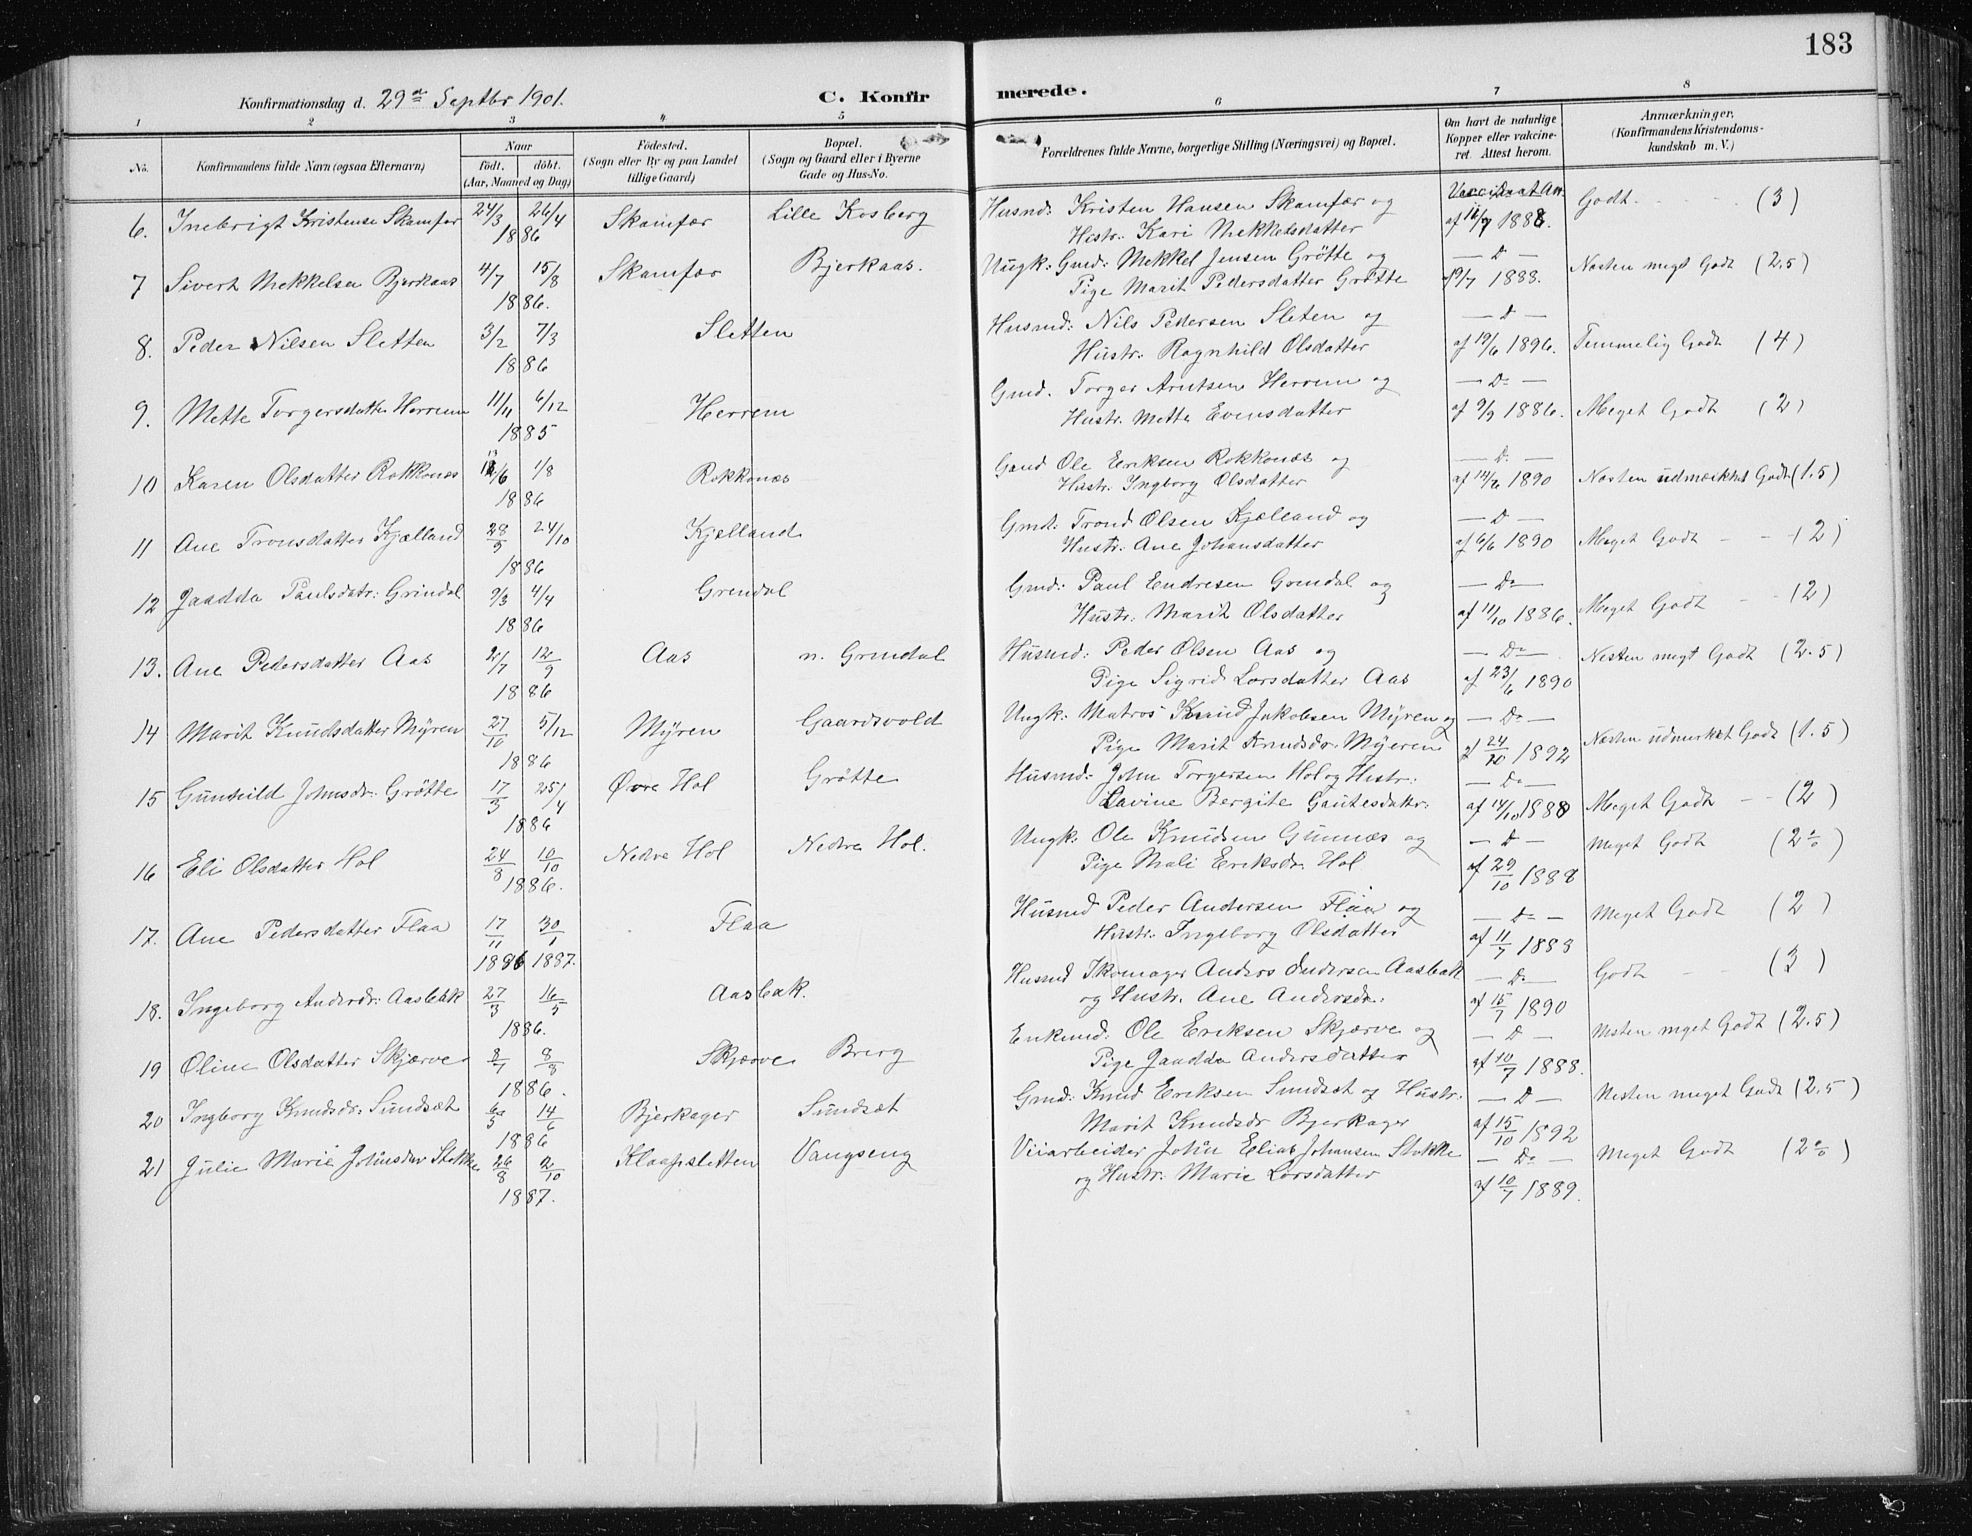 183
Konfirmationsdag d. 29de Septbr 1901.
C. Konfirmerede.
1 2 3 4 5 6 7 8
No.
Konfirmandens fulde Navn (ogsaa Efternavn)
Naar
födt. döbt.
(Aar, Maaned og Dag)
Födested.
(Sogn eller By og paa Landet
tillige Gaard)
Bopæl.
(Sogn og Gaard eller i Byerne
Gade og Hus-No.
Forældrenes fulde Navne, borgerlige Stilling (Næringsvei) og Bopæl.
Om havt de naturlige
Kopper eller vakcine-
ret. Attest herom.
Anmærkninger,
(Konfirmandens Kristendoms-
kundskab m. V.)
6. Inebrigt Kristensen Skamfer 24/3 26/4 Skamfær Lille Kosberg Husmd: Kristen Hansen Skamfær og Vaccinat Att. Godt. (3)
1886 Hustr: Kari Mekkelsdatter af 11/7 1888.
7 Sivert Mekkelsen Bjerkaas 4/7 15/8 Skamfær Bjerkaas. Ungk: Gmd: Mekkel Jensen Grötte og — D — Næsten meget Godt (2.5)
1886. Pige Marit Pedersdatter Grötte 19/7 1888.
8. Peder Nilsen Sletten 3/2 7/3 Sletten Husmd: Nils Pedersen Sleten og — D —
1886 Hustr: Ragnhild Olsdatter af 19/6 1896. Temmelig Godt (4)
9. Mette Torgersdatter Herrem 11/11 6/12 Herrem Gmd. Torger Arntsen Herrem og — Do —
1885 Hustr. Mette Evensdatter af 9/9 1886. Meget Godt (2)
10 Karen Olsdatter Rokkonæs 1/8 Rokkonæs Gmd Ole Eriksen Rokkonæs og — D. —
1886 Hustr. Ingborg Olsdatter af 14/6 1890 Næsten udmærkket Godt (1.5)
11 Ane Tronsdatter Kjælland 28/9 24/10 Kjælland Gmd: Trond Olsen Kjælland og — D —
1886 Hustr: Ane Johansdatter af 6/6 1890 Meget Godt - - (2)
12 Jaadda Paulsdatr: Grindal 9/3 4/4 Grendal Gmd: Paul Endresen Grendal og — Do —
1886 Hustr: Marit Olsdatter af 11/10 1886. Meget Godt - - (2)
13. Ane Pedersdatter Aas 2/7 12/9 Aas n. Grendal Husmd: Peder Olsen Aas og — Do —
1886 Pige Sigrid Larsdatter Aas af 23/6 1890 Nesten megt Godt (2.5)
14 Marit Knudsdatter Myren 27/10 5/12 Myren Gaardsvold Ungk: Matros Knud Jakobsen Myren og — Do —
1886 Pige Marit Knudsdr. Myeren af 24/10 1892 Næsten udmerket Godt (1.5)
15 Gunhild Johnsdr: Grötte 17/3 25/4 Øvre Hol Grötte Husmd: John Torgersen Hol og Hustr: — Do —
1886 Lavine Bergite Gautesdattr: af 14/10 1888 Meget Godt - - (2)
16 Eli Olsdatter Hol 24/8 10/10 Nedre Hol Nedre Hol. Ungk: Ole Knudsen Gunnæs og — D — Meget Godt
1886. Pige Mali Eriksdr. Hol af 29/10 1888
17. Ane Pedersdatter Flaa 17/11 30/1 Flaa Husmd Peder Andersen Flaa og — Do — Meget Godt (2)
1886 1887. Hustr: Ingeborg Olsdatter af 11/7 1888
18. Ingeborg Andersdr: Aasbak 27/3 16/5 Aasbak. Husmd Skomager Anders Andersen Aasbak — Do — Godt — (3)
1886. og Hustr. Ane Andersdr. af 15/7 1890
19 Oline Olsdatter Skjærve 8/8 Skjærve Brerg Enkemd: Ole Eriksen Skjærve og — D — Nesten meget Godt (2.5)
1886. Pige Jaadda Andersdatter af 10/7 1888.
20 Ingborg Knudsdr: Sundsæt 14/6 Bjerkager Sundsæt Gmd: Knud Eriksen Sundsæt og Hustr. — D — Nesten meget Godt (2.5)
1886 Marit Knudsdr Bjerkager af 15/10 1892
21 Julie Marie Johnsdtr Stokke 26/8 2/10 Klaapsletten Vangseng Veiarbeider John Elias Johansen Stokke — Do — Meget Godt
1887. og Hustr: Marie Larsdatter af 10/7 1889.